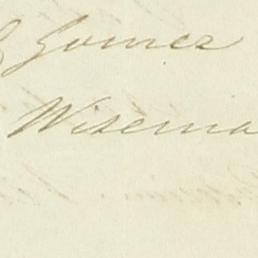 Gomez
Wisema